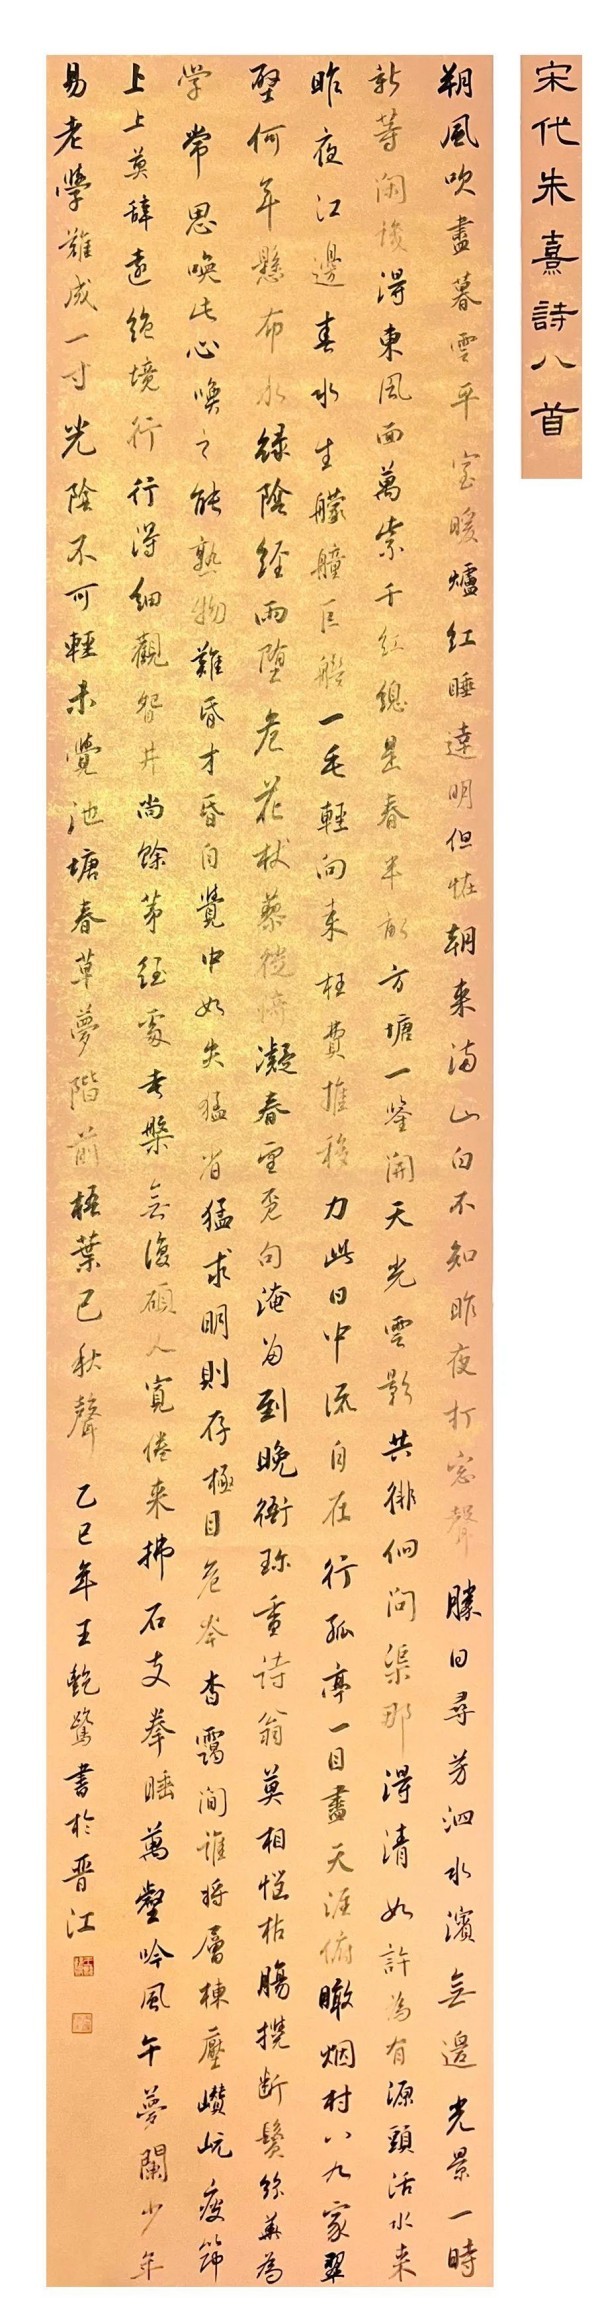 宋代朱熹詩八首
朔風吹盡暮雲平室暖爐紅睡達明但怪朝來滿山白不知昨夜打窓聲勝日尋芳泗水濱無邊光景一時
新等閑識得東風面萬紫千紅總是春半畝方塘一鉴開天光雲影共徘徊問渠那得清如許為有源頭活水來
昨夜江邊春水生艨艟巨艦一毛輕向來枉費推移力此日中流自在行孤亭一目盡天涯俯瞰烟村八九家翠
壁何年懸布水綠陰經雨墮危花杖藜徙倚凝春望覓句淹留到晚衙珍重詩翁莫相惱枯腸攪斷鬢絲華為
学常思喚此心喚之能熟物難昏才昏自覺中如失猛省猛求明則存極目危岑杳靄間誰將層棟壓巑岏疲筇
上上莫辭遠絶境行行得細觀眢井尚餘茅徑處考槃無復碩人寬倦來拂石支拳睡萬壑吟風午夢闌少年
易老學難成一寸光陰不可輕未覺池塘春草夢階前梧葉已秋聲 乙巳年王乾鷺書於晋江